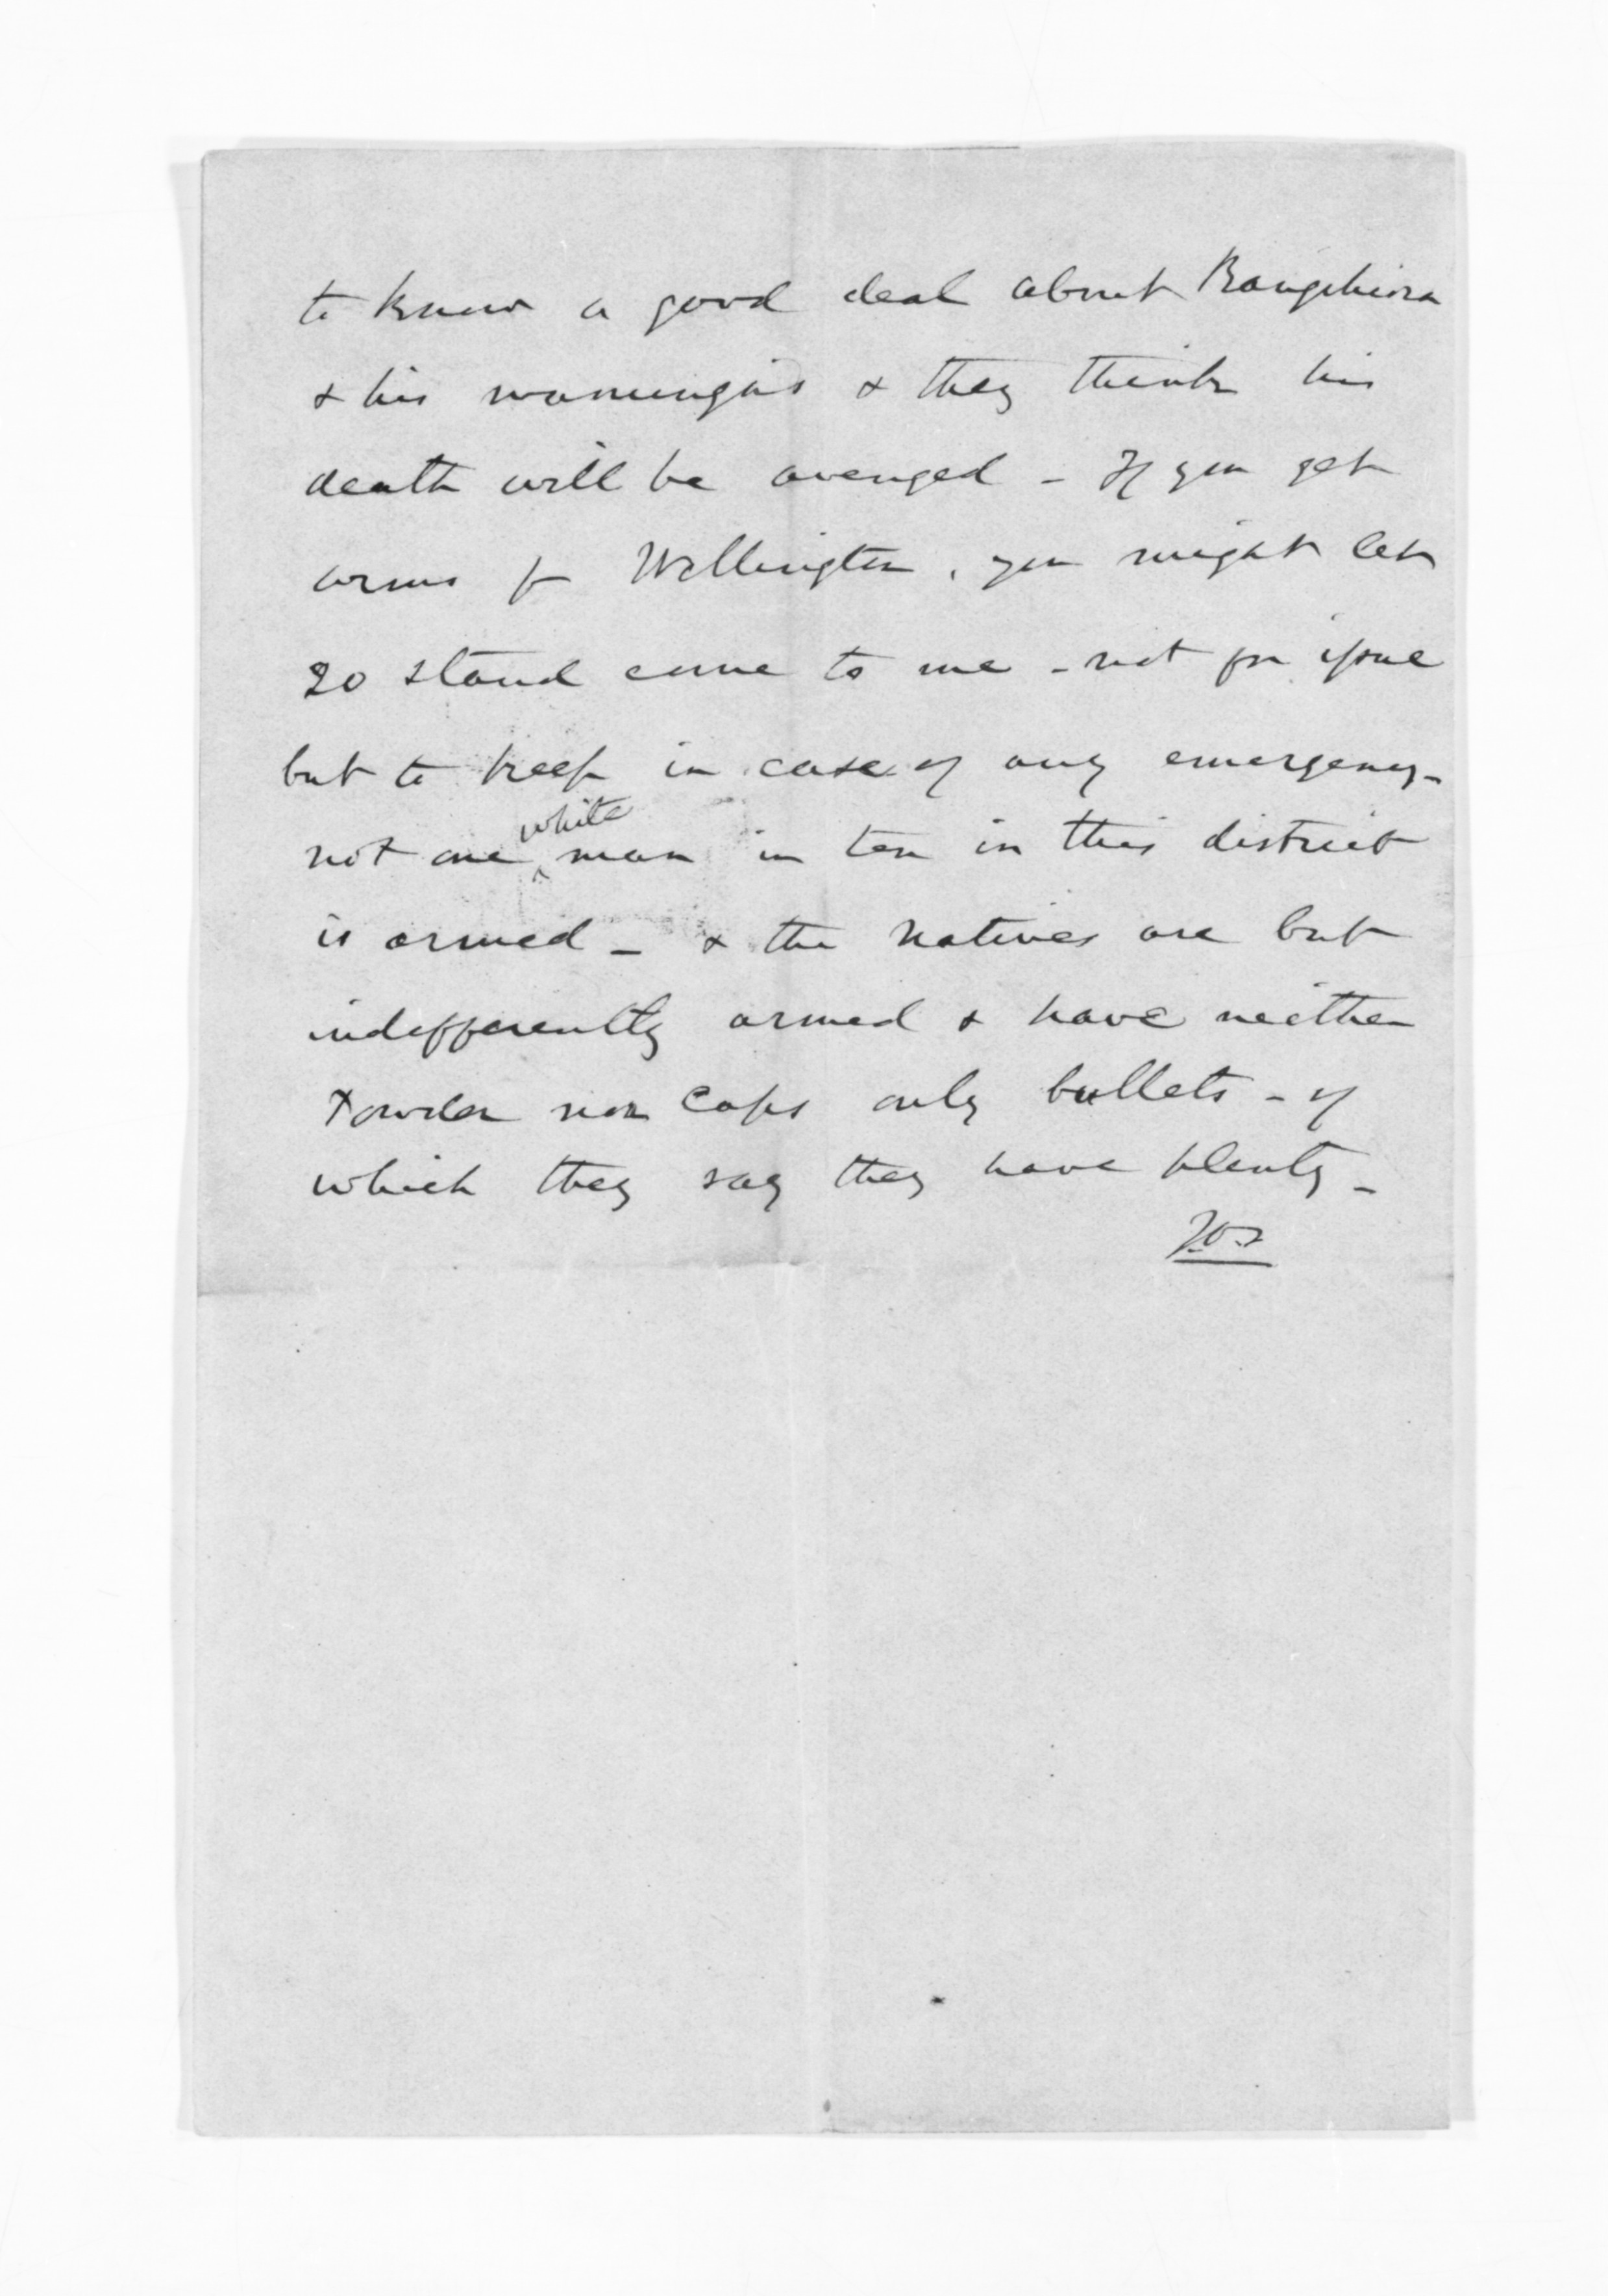 to know a good deal about Rangihiroa
& his & they think his
death will be avenged - If you get
arms for Wellington, you might let
20 stand come to me - not for issue
but to keep in case of any emergency -
not one white man in ten in this district
is armed - & the natives are but
indifferently armed & have neither
Powder nor caps only bullets - of
which they say they have plenty -